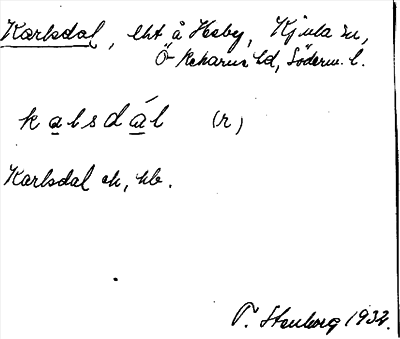 Karlsdal, lht å Hesby, Kjula sn,
Ö Rekarne hd, Söderm. l.
kalsdál (r)
Karlsdal ek, kb.
P. Stenborg 1932.